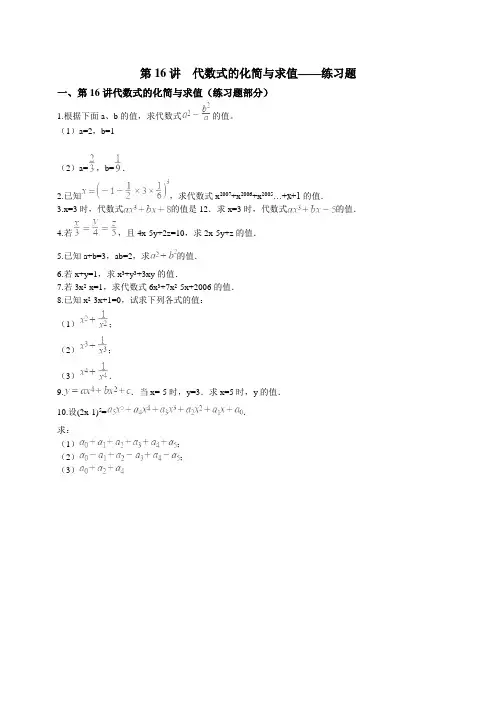 第16讲 代数式的化简与求值——练习题
一、第16讲代数式的化简与求值（练习题部分）
1.根据下面a、b的值，求代数式a²-b²/a的值。
（1）a=2，b=1
（2）a=2/3，b=1/9.
2.已知x=(-1÷1/2×3×1/6)³，求代数式x²⁰⁰⁷+x²⁰⁰⁶+x²⁰⁰⁵…+x+1的值.
3.x=3时，代数式ax³+bx+8的值是12．求x=3时，代数式ax³+bx-5的值．
4.若x/3=y/4=z/5，且4x-5y+2z=10，求2x-5y+z的值．
5.已知a+b=3，ab=2，求a²+b²的值．
6.若x+y=1，求x³+y³+3xy的值．
7.若3x²-x=1，求代数式6x³+7x²-5x+2006的值．
8.已知x²-3x+1=0，试求下列各式的值：
（1）x²+1/x²；
（2）x³+1/x³；
（3）x⁴+1/x⁴．
9.y=ax⁴+bx²+c．当x=-5时，y=3．求x=5时，y的值．
10.设(2x-1)⁵=a₅x⁵+a₄x⁴+a₃x³+a₂x²+a₁x+a₀．
求：
（1）a₀+a₁+a₂+a₃+a₄+a₅；
（2）a₀-a₁+a₂-a₃+a₄-a₅；
（3）a₀+a₂+a₄